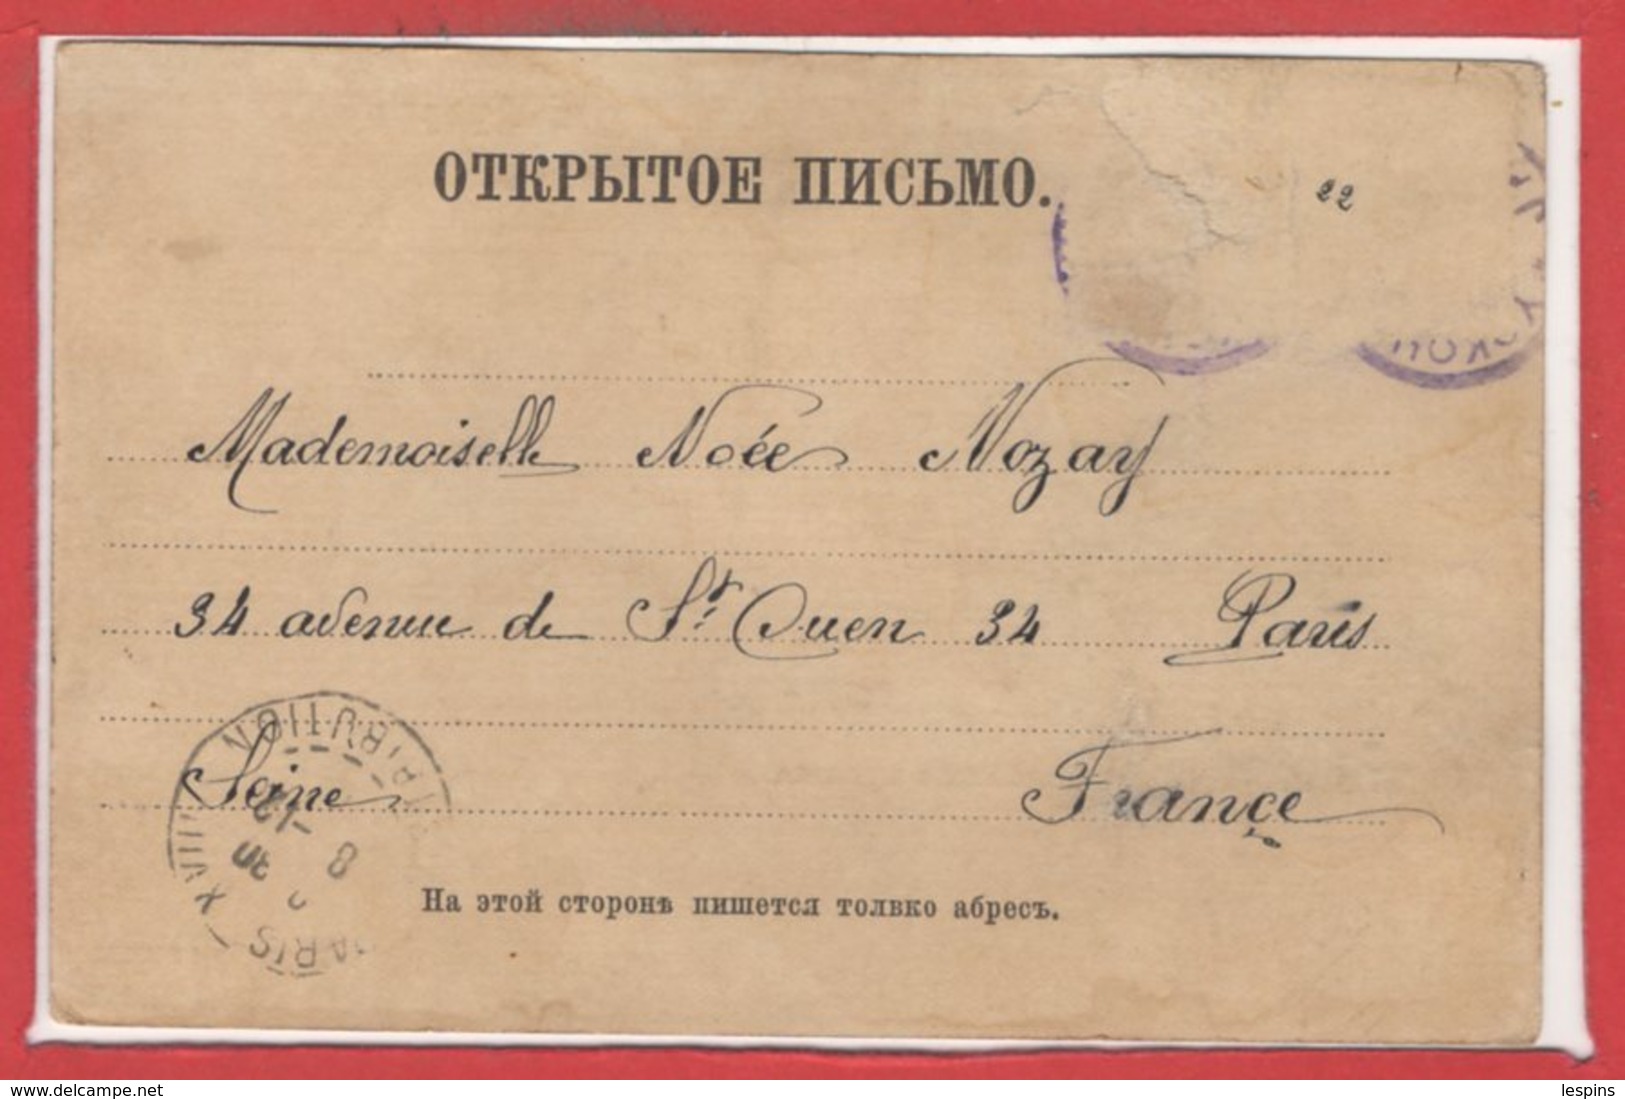 ОТКРЫТОЕ ПИСЬМО.
22
Mademoiselle Noée Nozay
34 avenue de St. Ouen 34 Paris
Seine France
На этой сторонѣ пишется толвко абресъ.
PARIS XVIII
delcampe.net
lespins